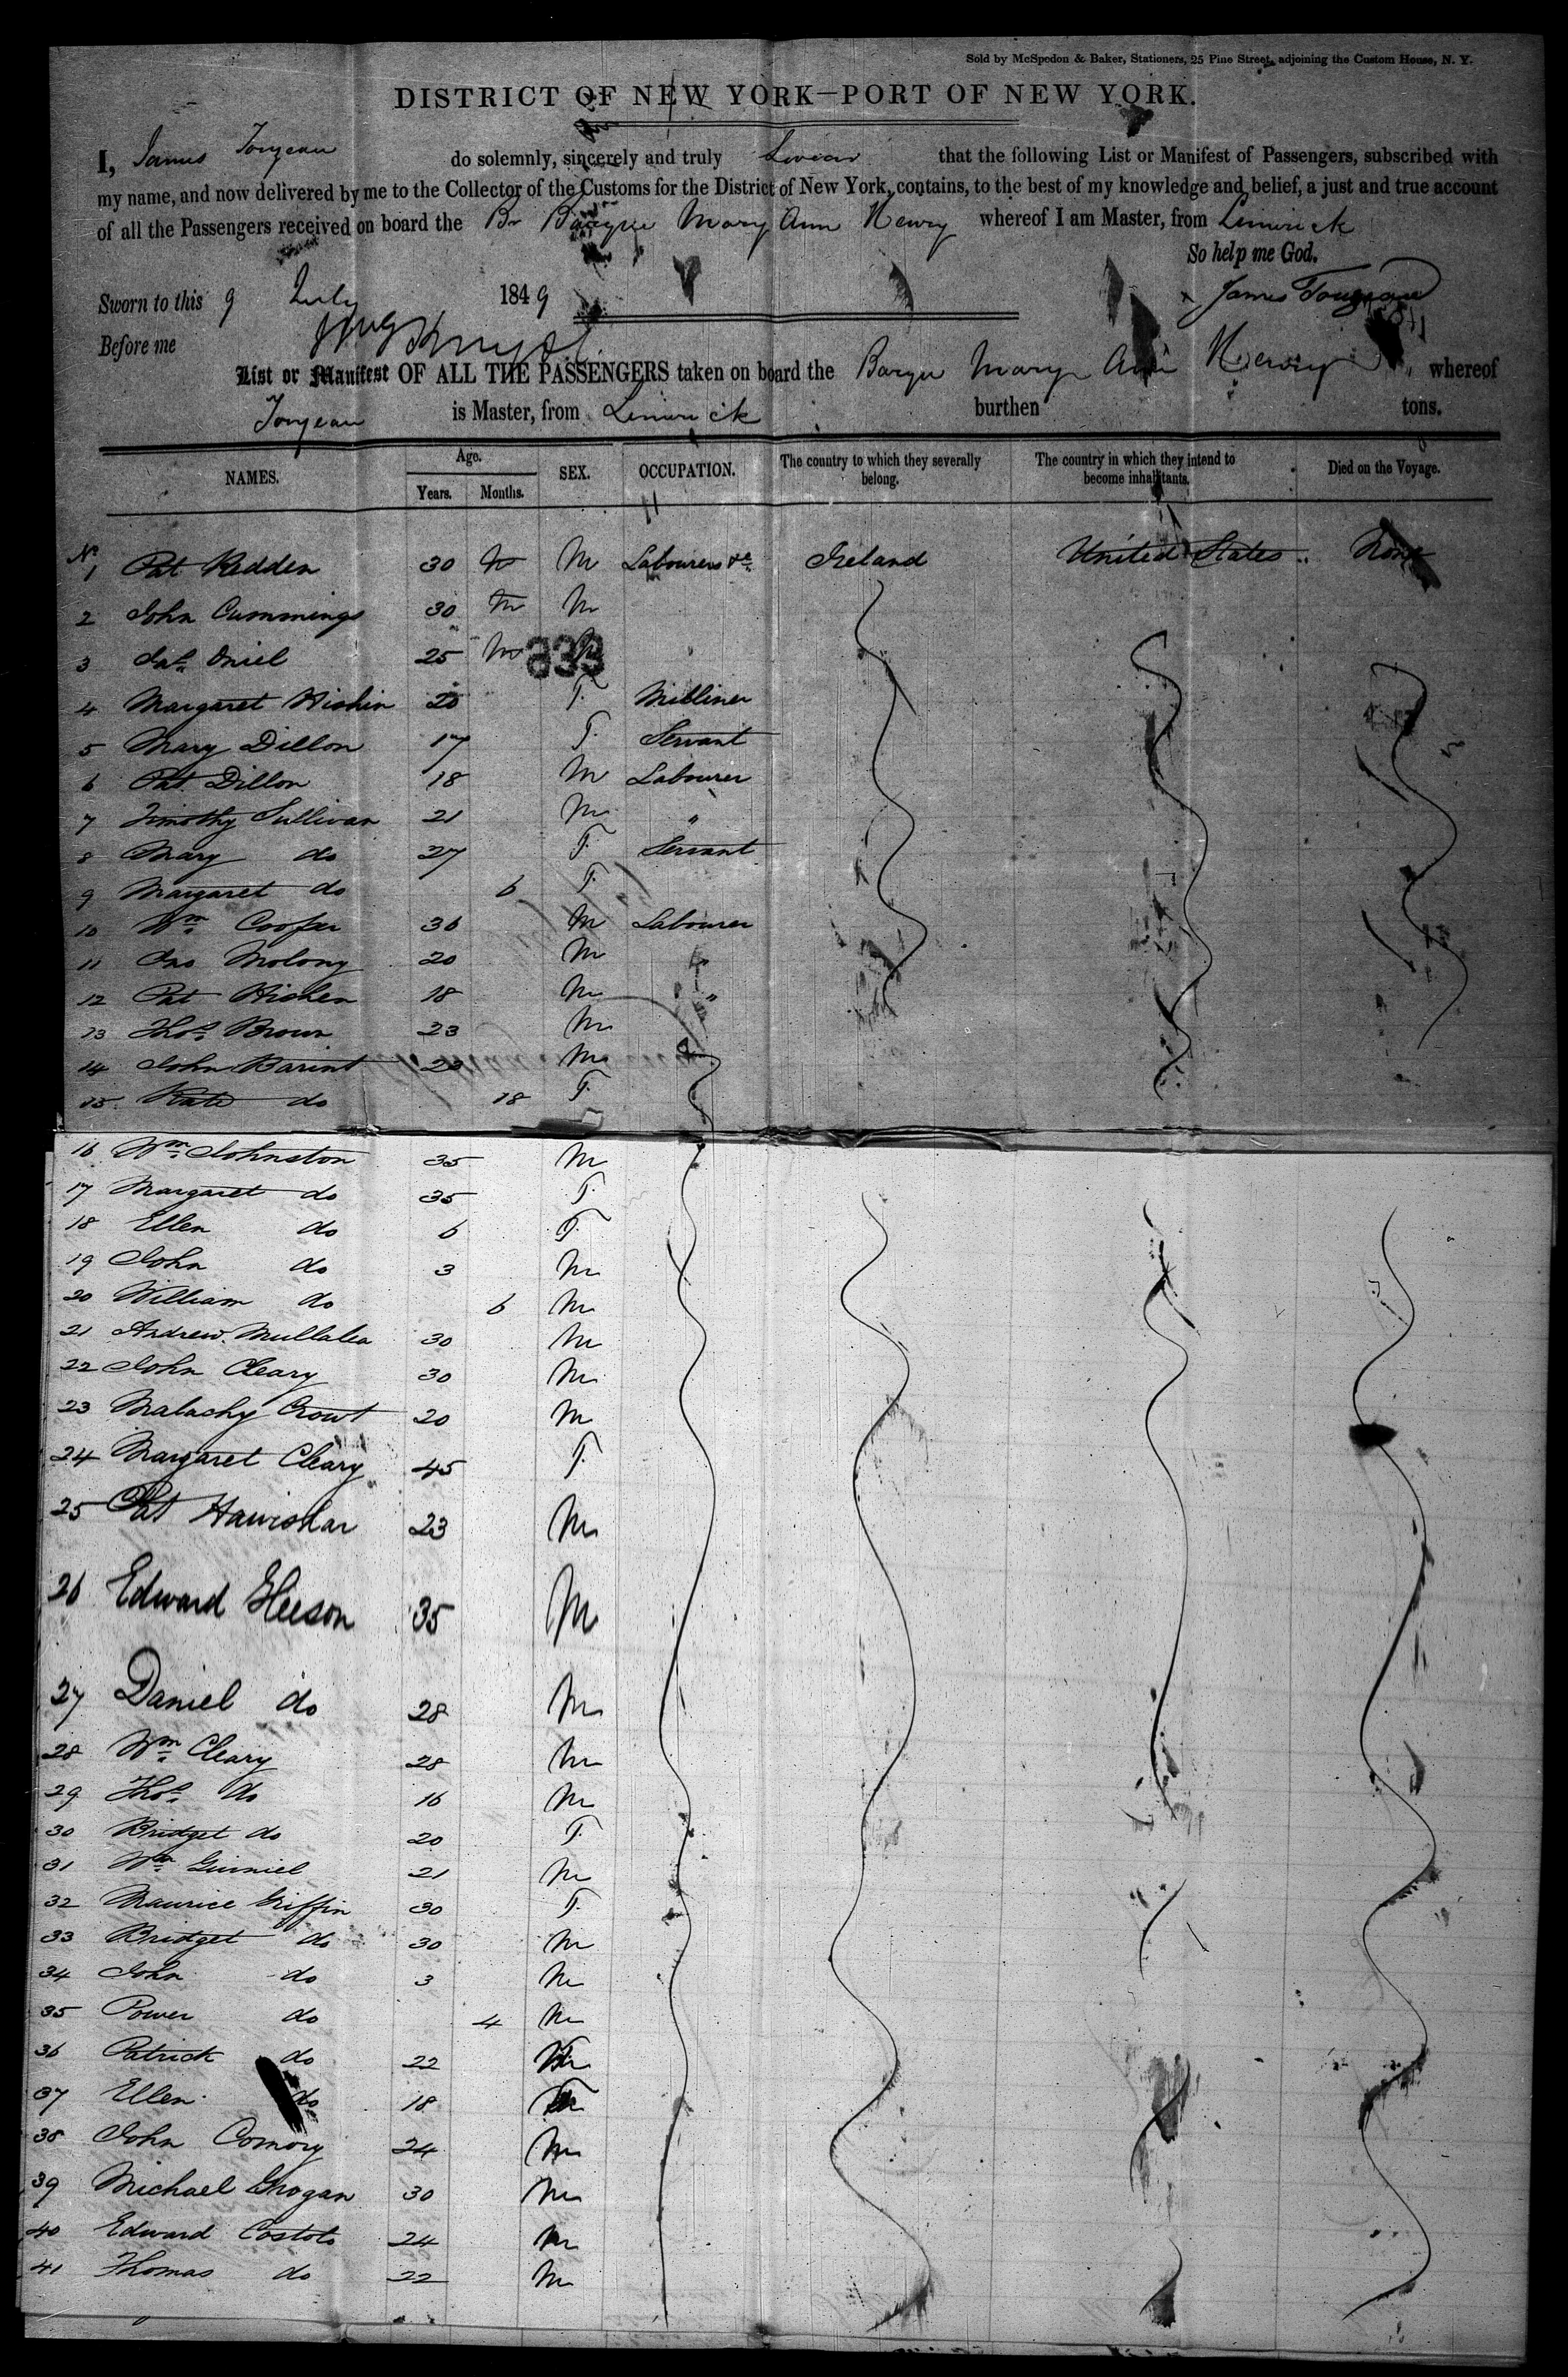 Sold by McSpedon & Baker, Stationers, 25 Pine Street, adjoining the Custom House, N. Y.
DISTRICT OF NEW YORK—PORT OF NEW YORK.
I, James do solemnly, sincerely and truly Swear that the following List or Manifest of Passengers, subscribed with
my name, and now delivered by me to the Collector of the Customs for the District of New York, contains, to the best of my knowledge and belief, a just and true account
of all the Passengers received on board the Br Barque Mary Ann Newry whereof I am Master, from Limerick
So help me God.
Sworn to this 9 July 1849 James
Before me
List or Manifest OF ALL THE PASSENGERS taken on board the Barque Mary Ann Newry whereof
is Master, from Limerick burthen tons.
NAMES. Age. Years. Months. SEX. OCCUPATION. The country to which they severally belong. The country in which they intend to become inhabitants. Died on the Voyage.
No 1 Pat Redden 30 M Labourers &c Ireland United States None
2 John Cummings 30 M
3 Oniel 25 M
4 Margaret 20 F. Milliner
5 Mary Dillon 17 F. Servant
6 Pat Dillon 18 M Labourer
7 Timothy Sullivan 21 M "
8 Mary do 27 F. Servant
9 Margaret do 6 F.
10 Wm Cooper 36 M Labourer
11 Jas Molony 20 M "
12 Pat 18 M "
13 Thos Brown 23 M
14 John 23 M
15 Kate do 18 F.
16 Wm Johnston 35 M
17 Margaret do 35 F.
18 Ellen do 6 F.
19 John do 3 M
20 William do 6 M
21 Andrew Mullalea 30 M
22 John Cleary 30 M
23 Malachy Crowt 20 M
24 Margaret Cleary 45 F.
25 Pat 23 M
26 Edward Gleeson 35 M
27 Daniel do 28 M
28 Wm Cleary 28 M
29 Thos do 16 M
30 Bridget do 20 F.
31 Wm 21 M
32 Maurice Griffin 30 F.
33 Bridget do 30 M
34 John do 3 M
35 Power do 4 M
36 Patrick do 22 M
37 Ellen do 18 F
38 John Comory 24 M
39 Michael Grogan 30 M
40 Edward Costolo 24 M
41 Thomas do 22 M